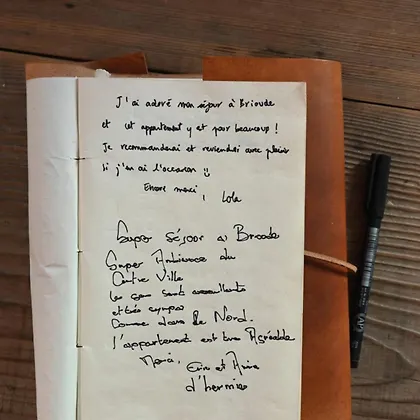 J'ai adoré mon séjour à Brioude
et cet appartement y est pour beaucoup !
Je recommanderai et reviendrai avec plaisir
si j'en ai l'occasion
Encore merci, Lola
Super Séjour à Brioude
Super Ambiance du
Centre Ville
les gens sont accueillants
et très sympas
Comme dans le Nord.
l'appartement est très Agréable
Merci,
d'hermies